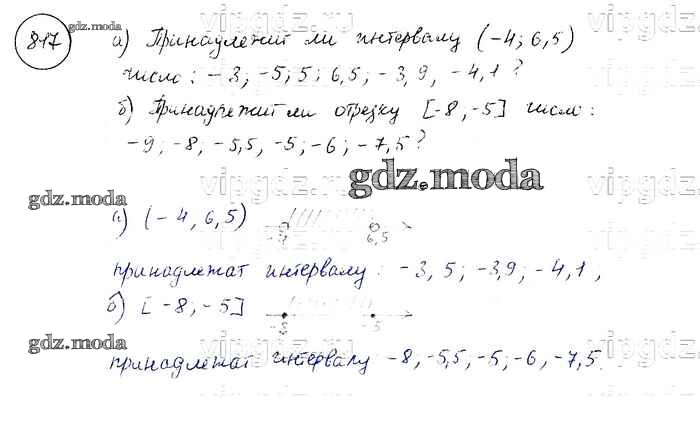 817
а) Принадлежит ли интервалу (-4; 6,5)
число: -3; -5; 5; 6,5; -3,9, -4,1?
б) Принадлежит ли отрезку [-8, -5] число:
-9; -8; -5,5, -5; -6; -7,5?
а) (-4, 6,5)
-4 6,5
принадлежат интервалу: -3, 5; -3,9; -4,1,
б) [-8, -5]
-8 -5
принадлежат интервалу -8, -5,5, -5; -6, -7,5.
gdz.moda
gdz.moda
gdz.moda
gdz.moda
gdz.moda
vipgdz
vipgdz
vipgdz
vipgdz
vipgdz
vipgdz
vipgdz
vipgdz
vipgdz